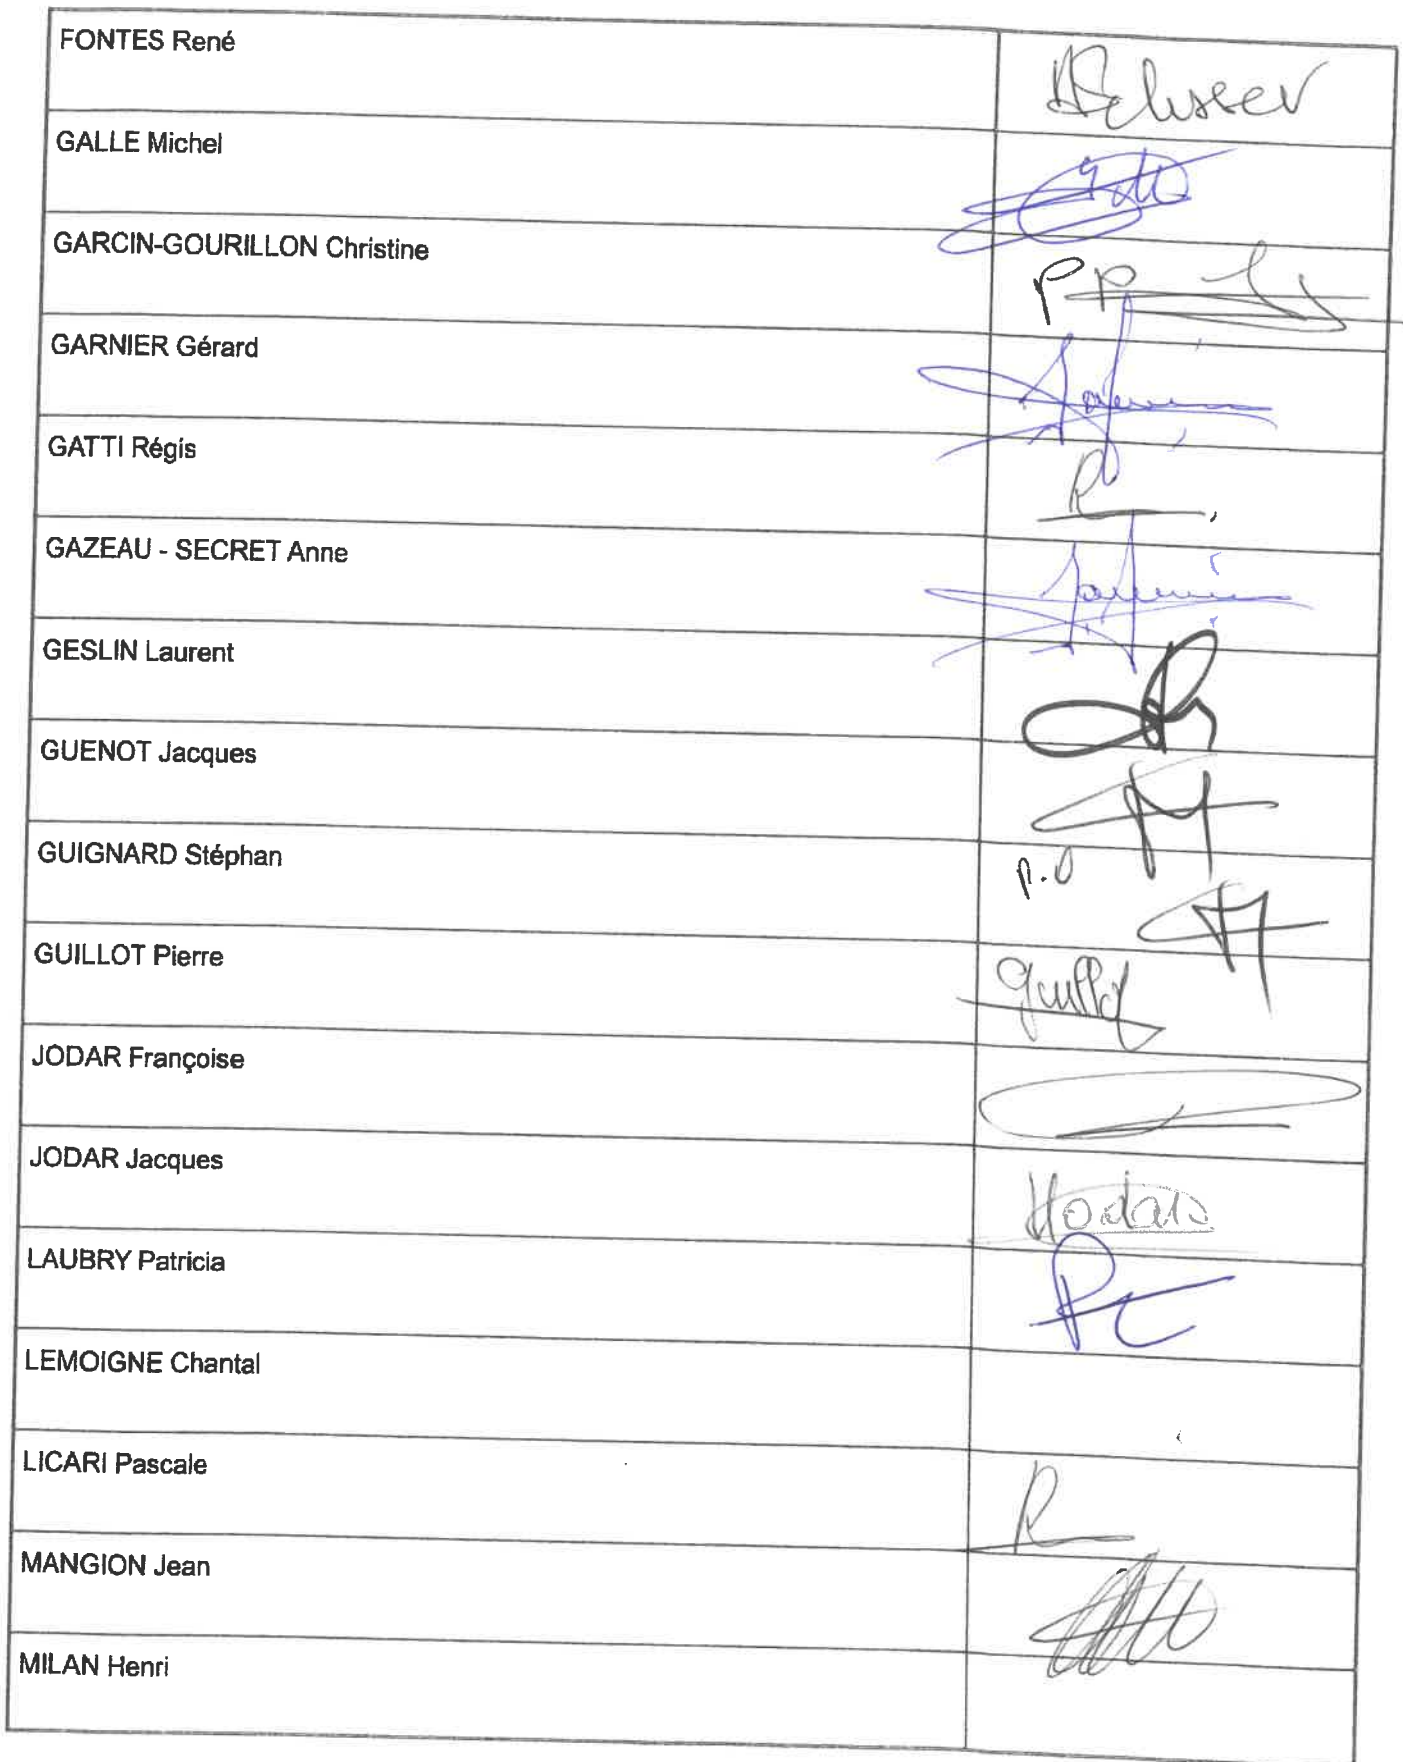 FONTES René
GALLE Michel
GARCIN-GOURILLON Christine
GARNIER Gérard
GATTI Régis
GAZEAU - SECRET Anne
GESLIN Laurent
GUENOT Jacques
GUIGNARD Stéphan
p.o
GUILLOT Pierre
JODAR Françoise
JODAR Jacques
LAUBRY Patricia
LEMOIGNE Chantal
LICARI Pascale
MANGION Jean
MILAN Henri